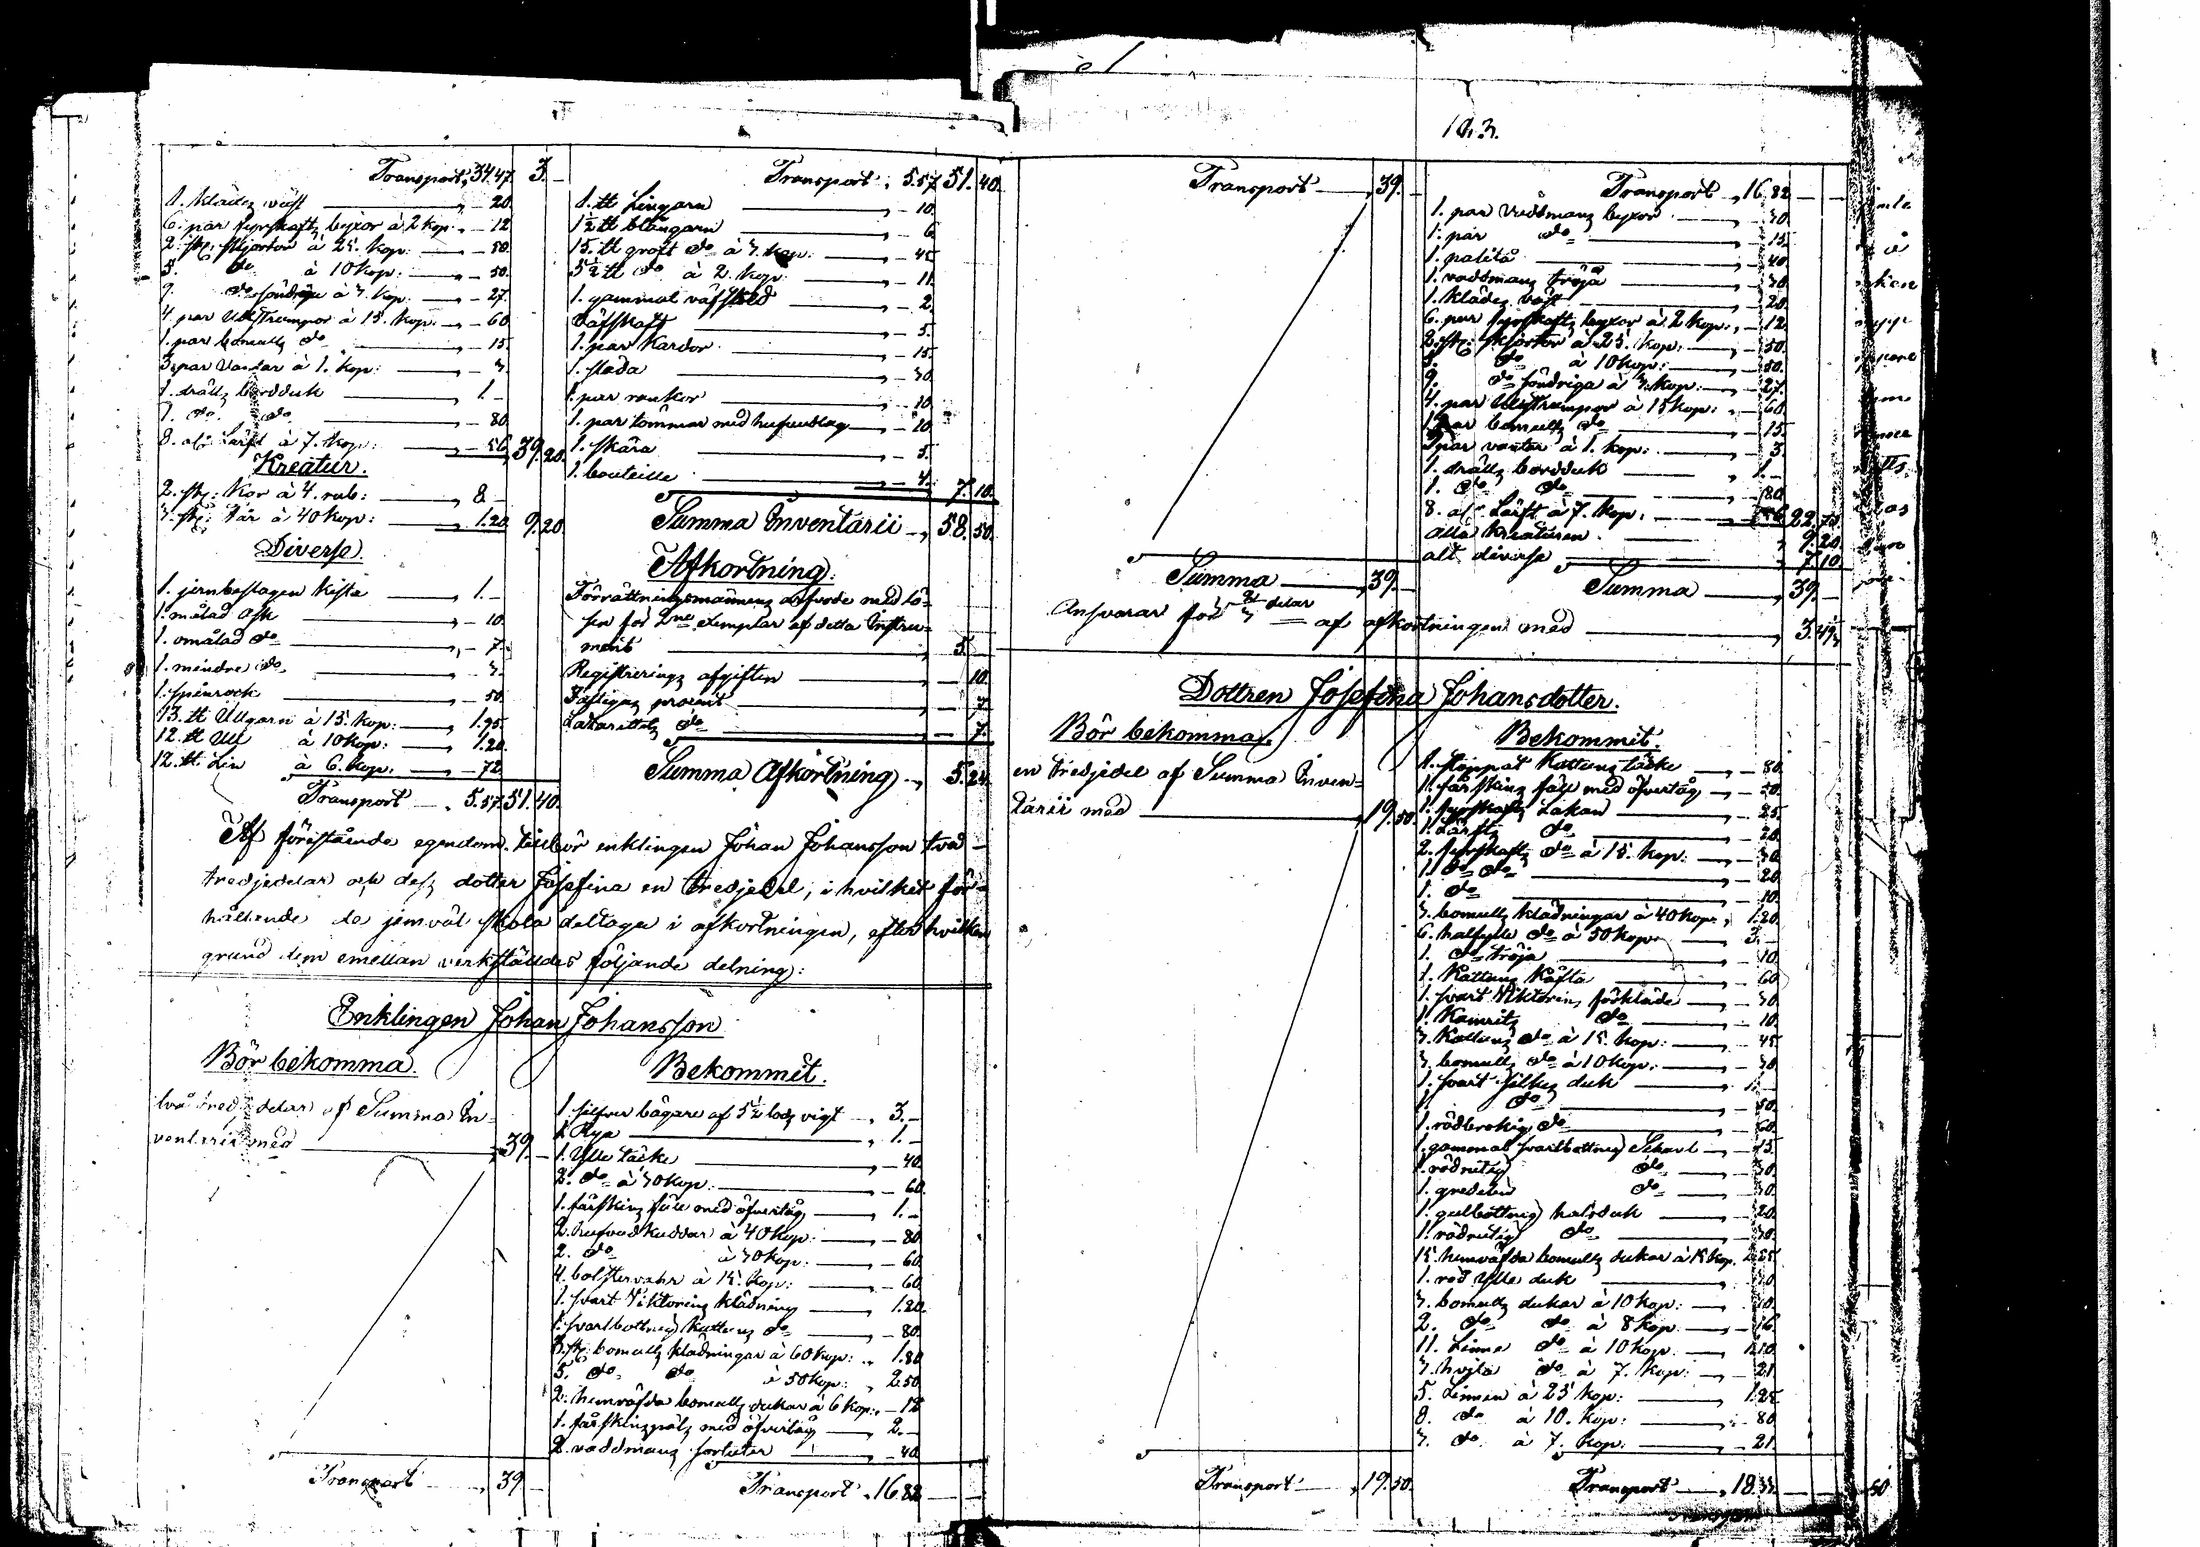 Transport, 34.47. 3.—
1. klädes väst — 20.
6. par fyrskafts byxor à 2 kop: — 12
2. st: skjortor à 25. kop: — 50.
5. do à 10 kop: — 50.
9. do söndriga à 3. kop: — 27.
4. par Ullstrumpor à 15. kop: — 60.
1. par bomulls do — 15.
3. par Vantar à 1. kop: — 3.
1. dralls bordduk 1.—
1. do do — 80.
8. aln: Lärft à 7. kop: — 56. 39.20.
Kreatur.
2. st: Kor à 4. rub: 8.—
3. st: Får à 40 kop: 1.20. 9.20.
Diverse.
1. jernbeslagen kista 1.—
1. målad ask — 10.
1. omålad do — 7.
1. mindre do — 3.
1. spinrock — 50.
13. tt Ullgarn à 15. kop: 1.95.
12. tt Ull à 10 kop: 1.20.
12. tt Lin à 6. kop: — 72.
Transport 5.57. 51.40.
Transport, 5.57. 51.40.
1. tt Lingarn — 10.
1½ tt blångarn — 6.
15. tt groft do à 3. kop: — 45
5½ tt do à 2. kop: — 11.
1. gammal väfsked — 2.
Väfskaft — 5.
1. par Kardor — 15.
1. slada — 30.
1. par rankor — 10.
1. par tömmar med hufvudlag — 20.
1. skära — 5.
1. bouteille — 4. 7.10.
Summa Inventarii 58.50.
Afkortning.
Förrättningsmännens arfvode med lö-
sen för 2ne exemplar af detta Instru-
ment 5.—
Registrerings afgiften — 10.
Fattigas procent — 7.
Lazaretts do — 7.
Summa Afkortning 5.24.
Af förestående egendom tillhör enklingen Johan Johansson två
tredjedelar och dess dotter Josefina en tredjedel, i hvilket för-
hållande de jemväl skola deltaga i afkortningen, efter hvilken
grund dem emellan verkställdes följande delning:
Enklingen Johan Johansson
Bör bekomma.
två tredjedelar af Summa In-
ventarii med 39.—
Transport 39.—
Bekommit.
1. silfver bägare af 5½ lods vigt 3.—
1. Rya 1.—
1. Ylle täcke — 40.
2. do à 30 kop: — 60.
1. fårskins fäll med öfvertåg 1.—
2. hufvudkuddar à 40 kop: — 80.
2. do à 30 kop: — 60.
4. bolstervahr à 15. kop: — 60.
1. svart Viktorins klädning 1.20.
1. svartbottnig Kattuns do — 80.
3. st: bomulls klädningar à 60 kop: 1.80
5. do do à 50 kop: 2.50
2. hemväfda bomulls dukar à 6 kop: — 12
1. fårskinspäls med öfvertåg 2.—
2. vaddmans sortuter — 40.
Transport 16.82.
103.
Transport 39.—
Summa 39.—
Transport, 16.82.
1. par vadmans byxor — 30.
1. par do — 15.
1. paletå — 40
1. vadmans tröja — 30
1. klädes väst — 20.
6. par fyrskafts byxor à 2 kop: — 12
2. st: skjortor à 25. kop: — 50.
5. do à 10 kop: — 50.
9. do söndriga à 3. kop: — 27.
4. par Ullstrumpor à 15 kop: — 60.
1. par bomulls do — 15.
3. par vantar à 1. kop: — 3.
1. dralls bordduk 1.—
1. do do — 80.
8. aln Lärft à 7. kop: — 56. 22.70.
Alla kreaturen 9.20.
alt diverse 7.10.
Summa 39.—
Ansvarar för 2/3 delar af afkortningen med 3.49⅓
Dottren Josefina Johansdotter.
Bör bekomma.
en tredjedel af Summa Inven-
tarii med 19.50.
Transport 19.50.
Bekommit.
1. stoppat Kattuns täcke — 80.
1. fårskins fäll med öfvertåg — 50.
1. fyrskafts Lakan — 25.
1. Lärfts do — 20.
2. fyrskafts do à 15. kop: — 30.
1. do do — 20.
1. do — 10.
3. bomulls klädningar à 40 kop: 1.20.
6. halfylle do à 50 kop: 3.—
1. do tröja — 10.
1. Kattuns Kåfta — 60
1. svart Viktorins förkläde — 30
1. Kamrits do — 10.
3. Kattuns do à 15. kop: — 45
3. bomulls do à 10 kop: — 30
1. svart Silkes duk 1.—
1. do — 50.
1. rödbrokig do — 60.
1. gammal svartbottnig Schavl — 15.
1. rödrutig do — 30.
1. gredelin do — 30.
1. gulbottnig halsduk — 20.
1. rödrutig do — 30.
15. hemväfda bomulls dukar à 15 kop. 2.25.
1. röd Ylle duk
3. bomulls dukar à 10 kop: — 30.
2. do do à 8 kop. — 16.
11. Linne do à 10 kop. 1.10.
3. hvita do à 7. kop: — 21.
5. Linnen à 25 kop: 1.25.
8. do à 10. kop: — 80
3. do à 7. kop: — 21.
Transport 18.33.